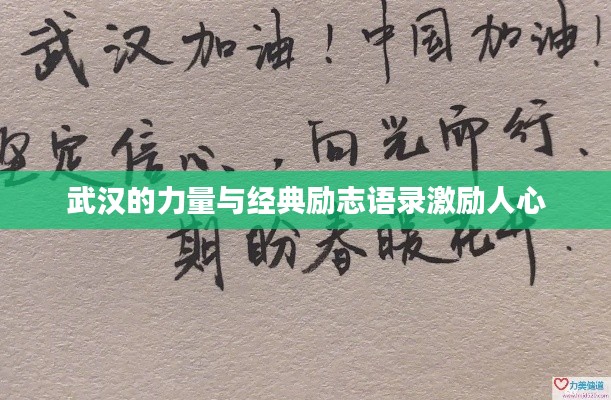 武汉加油！中国加油！
坚定信心，向光而行.
武汉的力量与经典励志语录激励人心
期盼春暖花开.
力美健道